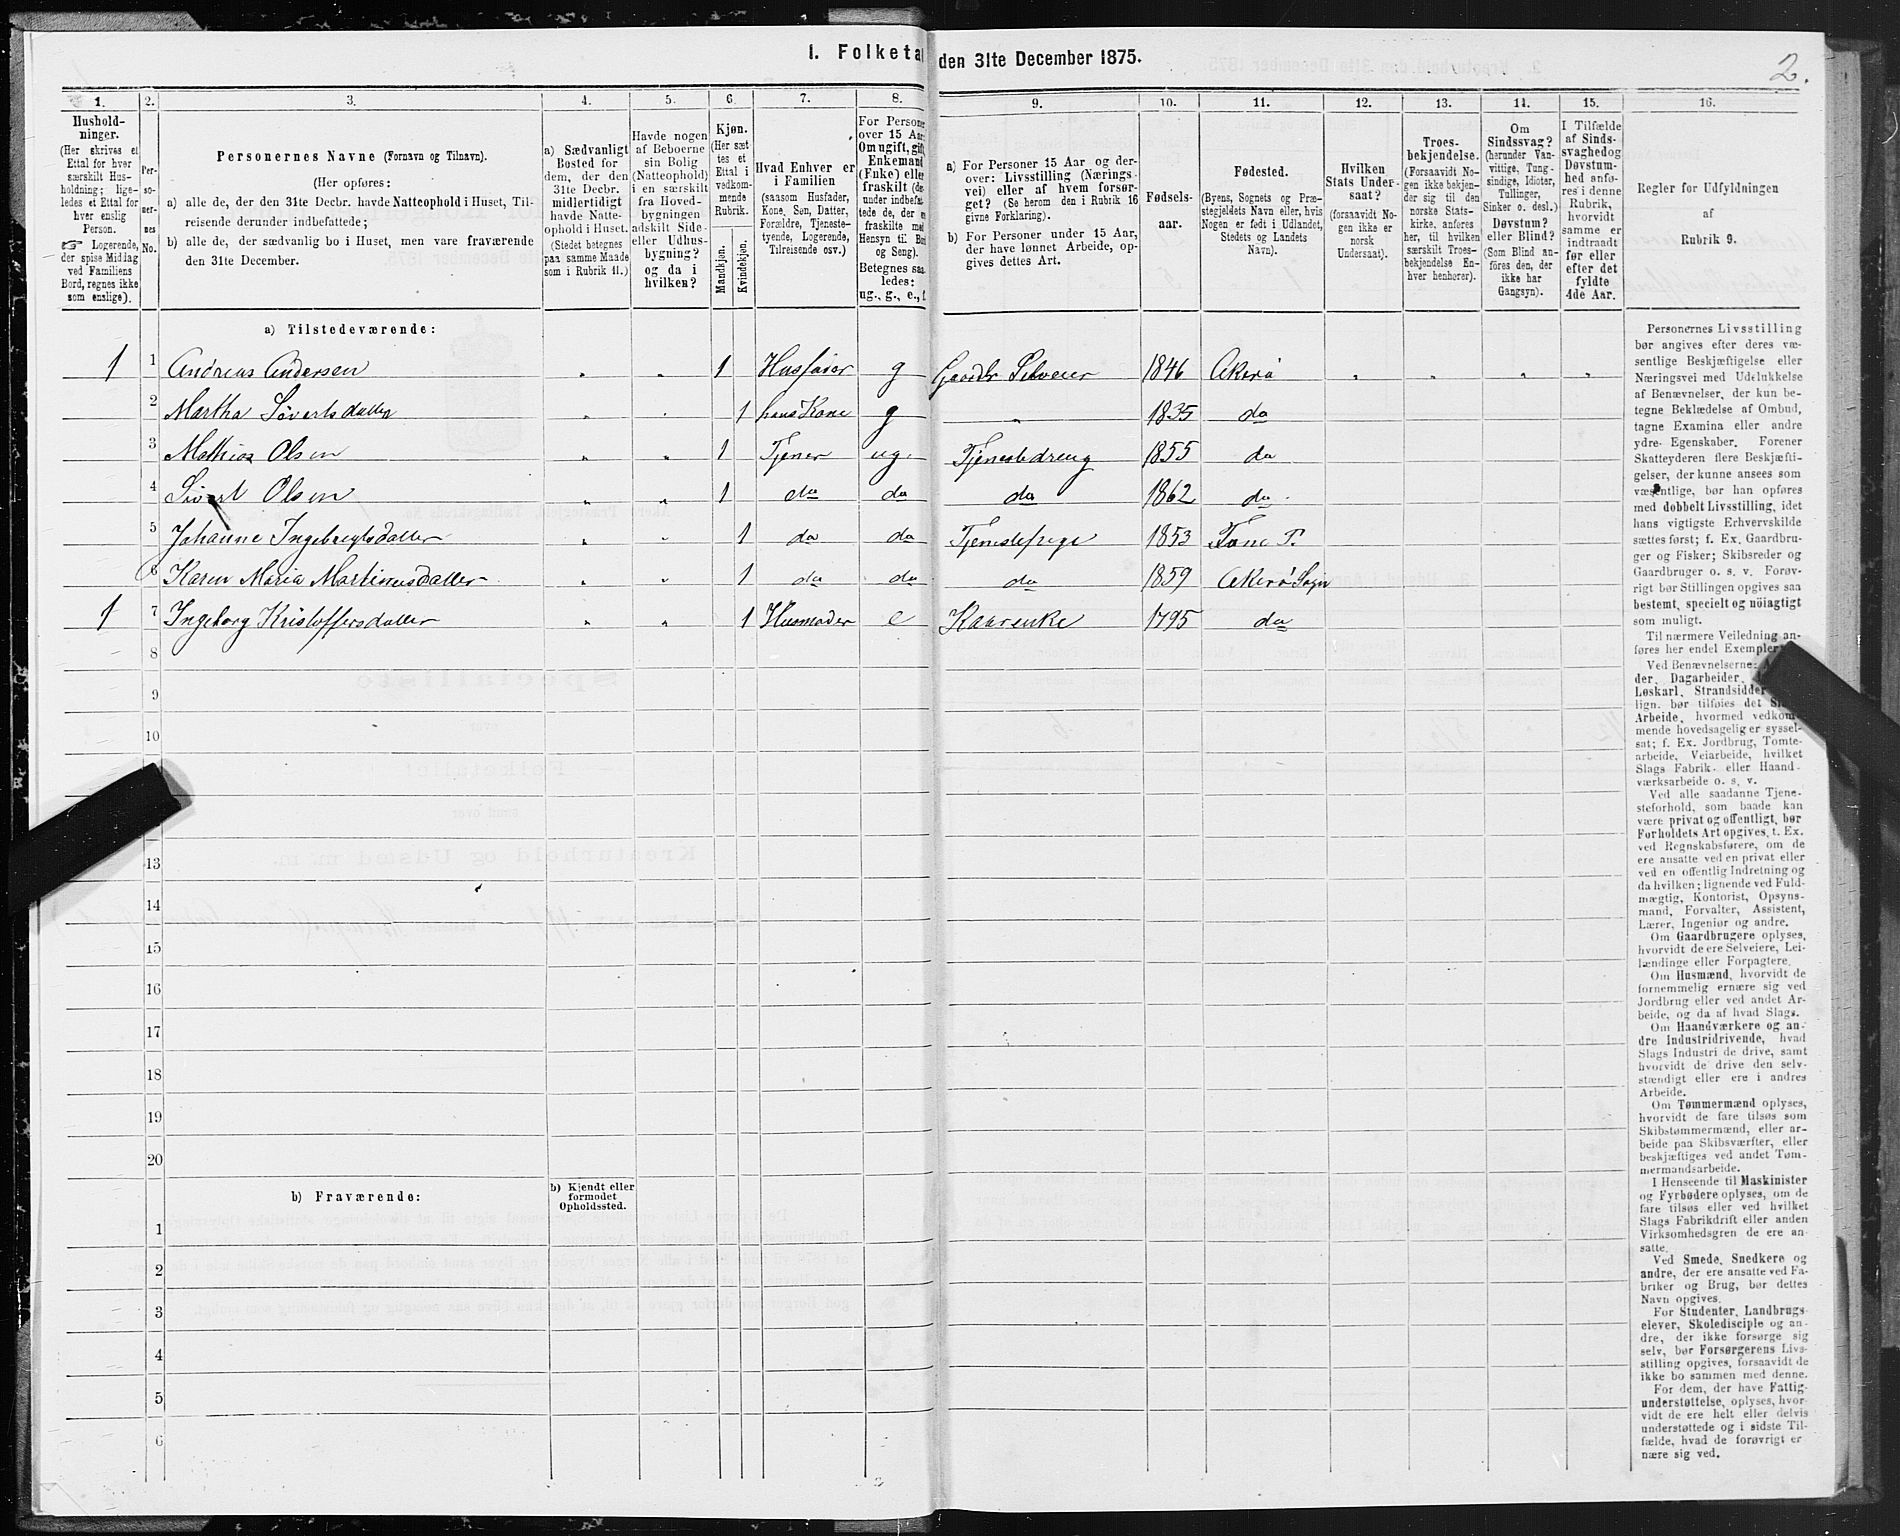 1. Folketal den 31te December 1875.
2.
1. 2. 3. 4. 5. 6. 7. 8. 9. 10. 11. 12. 13. 14. 15. 16.
Hushold-
ninger.
(Her skrives et
Ettal for hver
særskilt Hus-
holdning; lige-
ledes et Ettal for
hver enslig
Person.
☞ Logerende,
der spise Middag
ved Familiens
Bord, regnes ikke
som enslige).
Per-
so-
ner-
nes
No.
Personernes Navne (Fornavn og Tilnavn).
(Her opføres:
a) alle de, der den 31te Decbr. havde Natteophold i Huset, Til-
reisende derunder indbefattede;
b) alle de, der sædvanlig bo i Huset, men vare fraværende
den 31te December.
a) Sædvanligt
Bosted for
dem, der den
31te Decbr.
midlertidigt
havde Natte-
ophold i Huset.
(Stedet betegnes
paa samme Maade
som i Rubrik 11.)
Havde nogen
af Beboerne
sin Bolig
(Natteophold)
i en særskilt
fra Hoved-
bygningen
adskilt Side-
eller Udhus-
bygning?
og da i
hvilken?
Kjøn.
(Her sæt
tes et
Ettal i
vedkom-
mende
Rubrik.
Mandkjøn.
Kvindekjøn.
Hvad Enhver er
i Familien
(saasom Husfader,
Kone, Søn, Datter,
Forældre, Tjeneste-
tyende, Logerende,
Tilreisende osv.)
For Persone
over 15 Aar
Om ugift, gift
Enkemand
(Enke) elle
fraskilt (de
under indbefat
tede de, der e
fraskilte med
Hensyn til Bo
og Seng).
Betegnes saa
ledes:
ug., g., e., f.
a) For Personer 15 Aar og der-
over: Livsstilling (Nærings-
vei) eller af hvem forsør-
get? (Se herom den i Rubrik 16
givne Forklaring).
b) For Personer under 15 Aar,
der have lønnet Arbeide, op-
gives dettes Art.
Fødsels-
aar.
Fødested.
(Byens, Sognets og Præ-
stegjeldets Navn eller, hvis
Nogen er født i Udlandet,
Stedets og Landets
Navn).
Hvilken
Stats Under-
saat?
(forsaavidt No-
gen ikke er
norsk
Undersaat).
Troes-
bekjendelse.
(Forsaavidt No-
gen ikke bekjen-
der sig til den
norske Stats-
kirke, anføres
her, til hvilken
særskilt Troes-
bekjendelse En-
hver henhører).
Om
Sindssvag?
(herunder Van-
vittige, Tung-
sindige, Idioter,
Tullinger,
Sinker o. desl.)
Døvstum?
eller Blind?
(Som Blind an-
føres den, der
ikke har
Gangsyn).
I Tilfælde
af Sinds-
svaghed og
Døvstum-
hed anfø-
res i denne
Rubrik,
hvorvidt
samme er
indtraadt
før eller
efter det
fyldte
4de Aar.
Regler for Udfyldningen
af
Rubrik 9.
a) Tilstedeværende:
1 1 Andreas Andersen „ „ 1 Husfader g Gaardbr Selveier 1846 Akerø „ „ „ „
2 Martha Sivertsdatter „ „ 1 hans Kone g „ 1835 do
3 Mathias Olsen „ „ 1 Tjener ug. Tjenestedreng 1855 do
4 Sivert Olsen „ „ 1 do do do 1862 do
5 Johanne Ingebregtsdatter „ „ 1 do do Tjenestepige 1853 P.
6 Karen Maria Martinusdatter „ „ 1 do do do 1859 Akerø Sogn
1 7 Ingeborg Kristoffersdatter „ „ 1 Husmoder e Kaarenke 1795 do
8
9
10
13
14
15
16
17
18
19
20
b) Fraværende:
b) Kjendt eller
formodet
Opholdssted.
1
2
3
4
5
6
Personernes Livsstilling
bør angives efter deres væ-
sentlige Beskjæftigelse eller
Næringsvei med Udelukkelse
af Benævnelser, der kun be-
tegne Beklædelse af Ombud,
tagne Examina eller andre
ydre Egenskaber. Forener
Skatteyderen flere Beskjæfti-
gelser, der kunne ansees som
væsentlige, bør han opføres
med dobbelt Livsstilling, idet
hans vigtigste Erhvervskilde
sættes først; f. Ex. Gaardbru-
ger og Fisker; Skibsreder og
Gaardbruger o. s. v. Forøv-
rigt bør Stillingen opgives saa
bestemt, specielt og nöiagtigt
som muligt.
Til nærmere Veiledning an-
føres her endel Exempler
Ved Benævnelserne:
der, Dagarbeider,
Løskarl, Strandsidder
lign. bør tilføies det
Arbeide, hvormed vedkom-
mende hovedsagelig er syssel-
sat; f. Ex. Jordbrug, Tomte-
arbeide, Veiarbeide, hvilket
Slags Fabrik- eller Haand-
værksarbeide o. s. v.
Ved alle saadanne Tjene-
steforhold, som baade kan
være privat og offentligt, bør
Forholdets Art opgives, t. Ex.
ved Regnskabsførere, om de
ere ansatte ved en privat eller
ved en offentlig Indretning og
da hvilken; lignende ved Fuld-
mægtig, Kontorist, Opsyns-
mand, Forvalter, Assistent,
Lærer, Ingeniør og andre.
Om Gaardbrugere oplyses,
hvorvidt de ere Selveiere, Lei-
lændinge eller Forpagtere.
Om Husmænd, hvorvidt de
fornemmelig ernære sig ved
Jordbrug eller ved andet Ar-
beide, og da af hvad Slags.
Om Haandværkere og an-
dre Industridrivende, hvad
Slags Industri de drive, samt
hvorvidt de drive den selv-
stændigt eller ere i andres
Arbeide.
Om Tømmermænd oplyses,
hvorvidt de fare tilsøs som
Skibstømmermænd, eller ar-
beide paa Skibsværfter, eller
beskjæftiges ved andet Tøm-
mermandsarbeide.
I Henseende til Maskinister
og Fyrbødere oplyses, om de
fare tilsøs eller ved hvilket
Slags Fabrikdrift eller anden
Virksomhedsgren de ere an-
satte.
Ved Smede, Snedkere og
andre, der ere ansatte ved Fa-
briker og Brug, bør dettes
Navn opgives.
For Studenter, Landbrugs-
elever, Skoledisciple og an-
dre, der ikke forsørge sig
selv, bør Forsørgerens Livs-
stilling opgives, forsaavidt de
ikke bo sammen med denne.
For dem, der have Fattig-
understøttelse, oplyses, hvor-
vidt de ere helt eller delvis
understøttede og i sidste Til-
fælde, hvad de forøvrigt er
nære sig ved.